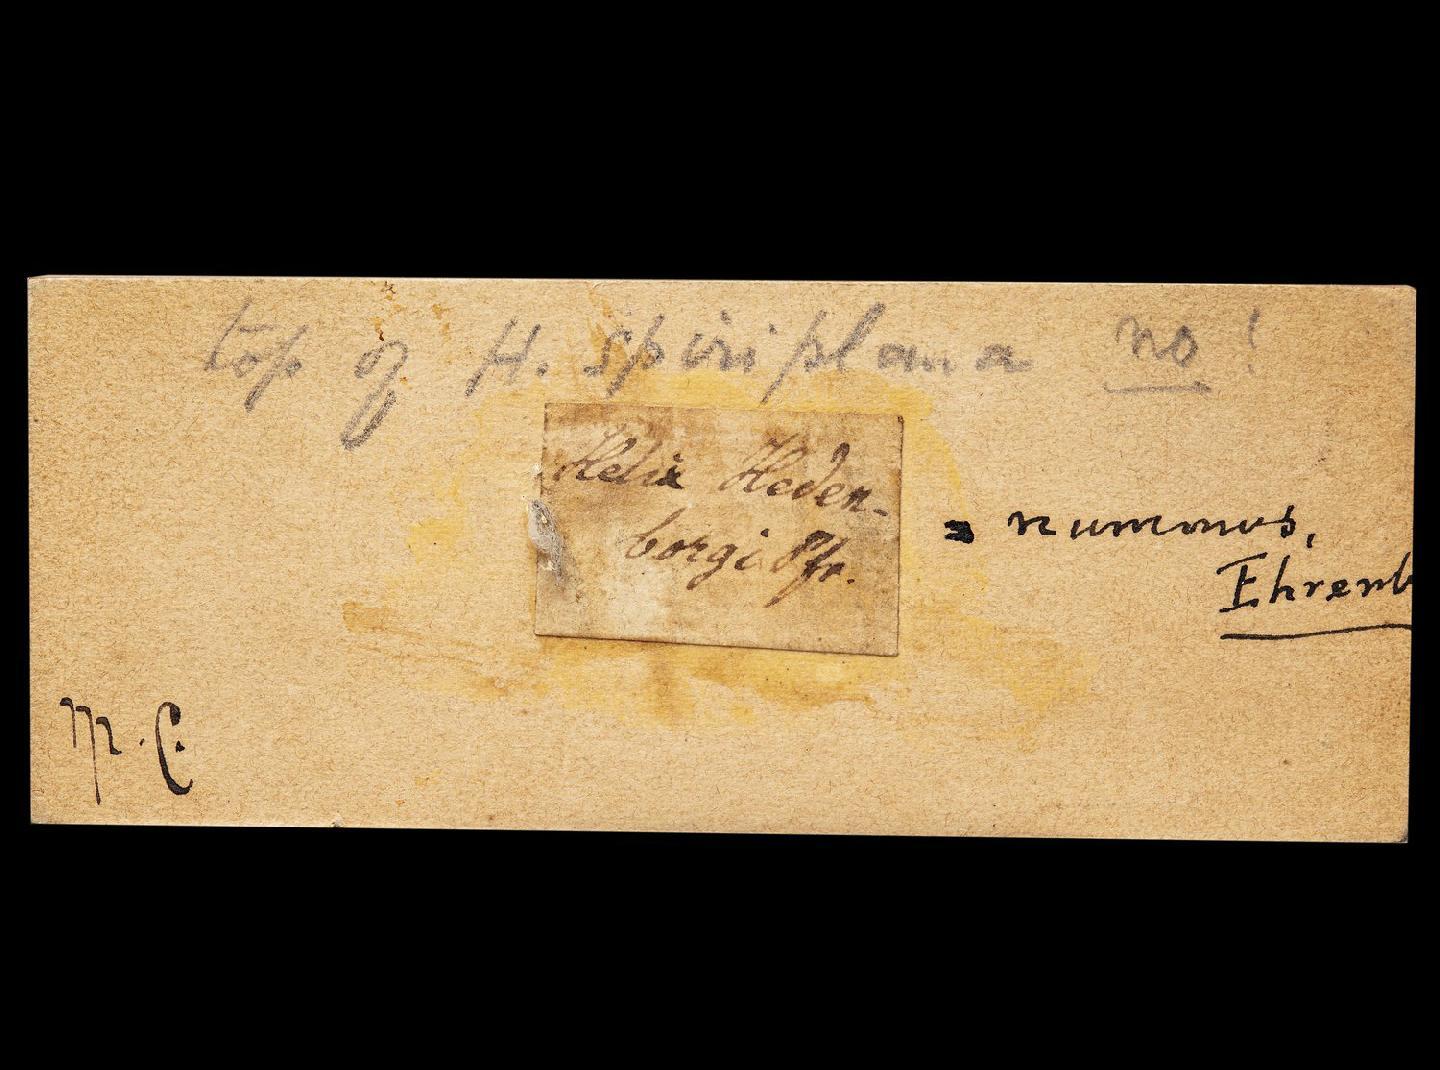 top of H. spiriplana no!
Helix Heden-
borgi Pfr.
= nummus,
Ehrenb
M.C.